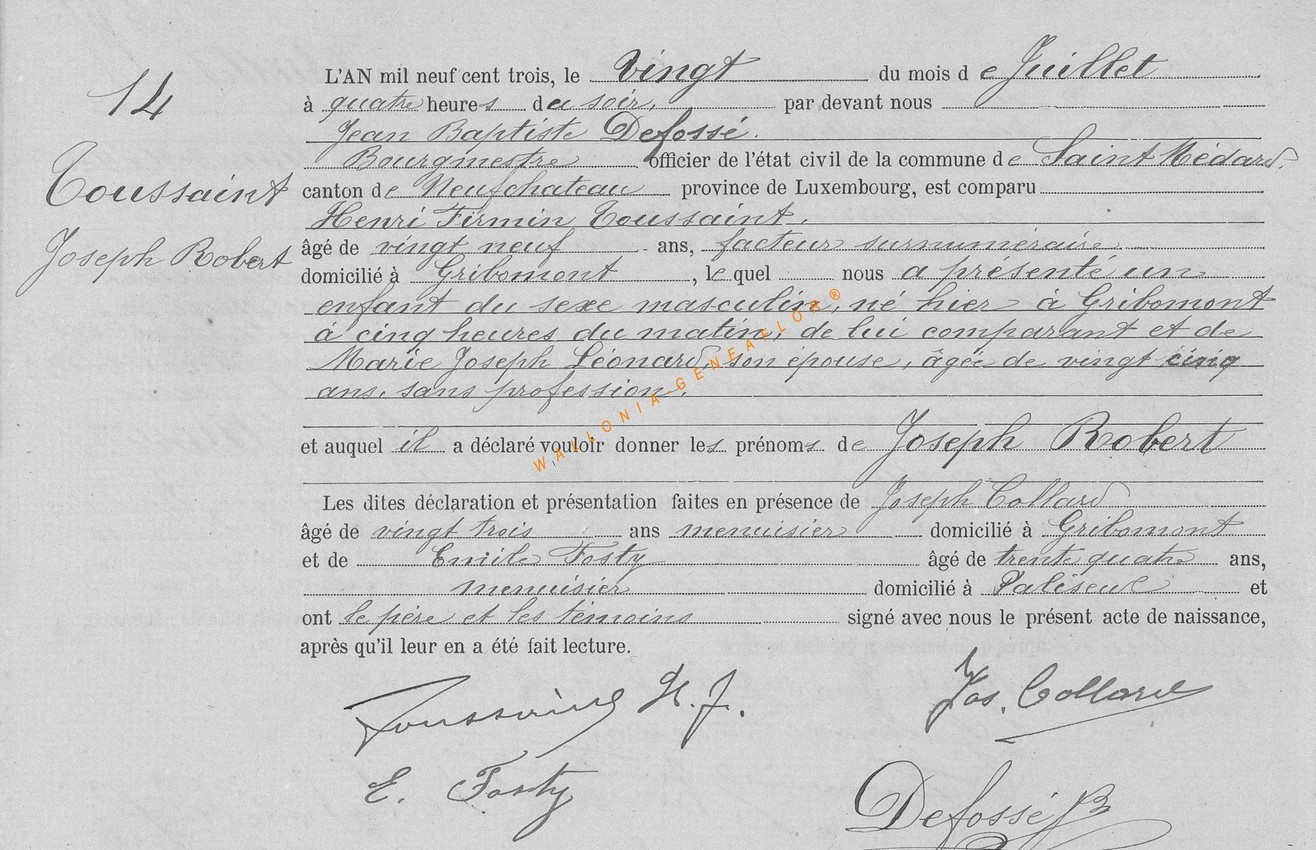 14
Toussaint
Joseph Robert
L'AN mil neuf cent trois, le vingt du mois de Juillet
à quatre heures du soir, par devant nous
Jean Baptiste Defossé.
Bourgmestre officier de l'état civil de la commune de Saint Médard.
canton de Neufchateau province de Luxembourg, est comparu
Henri Firmin Toussaint.
âgé de vingt neuf ans, facteur surnuméraire
domicilié à Gribomont, lequel nous a présenté un
enfant du sexe masculin, né hier à Gribomont
à cinq heures du matin, de lui comparant et de
Marie Joseph Léonard son épouse, âgée de vingt cinq
ans, sans profession.
et auquel il a déclaré vouloir donner les prénoms de Joseph Robert
Les dites déclaration et présentation faites en présence de Joseph Collard
âgé de vingt trois ans menuisier domicilié à Gribomont
et de Emile Fosty âgé de trente quatre ans,
menuisier domicilié à Paliseul et
ont le père et les témoins signé avec nous le présent acte de naissance,
après qu'il leur en a été fait lecture.
Toussaint H. F. Jos. Collard
E. Fosty Defossé JB
WALLONIA-GENEALLOR®